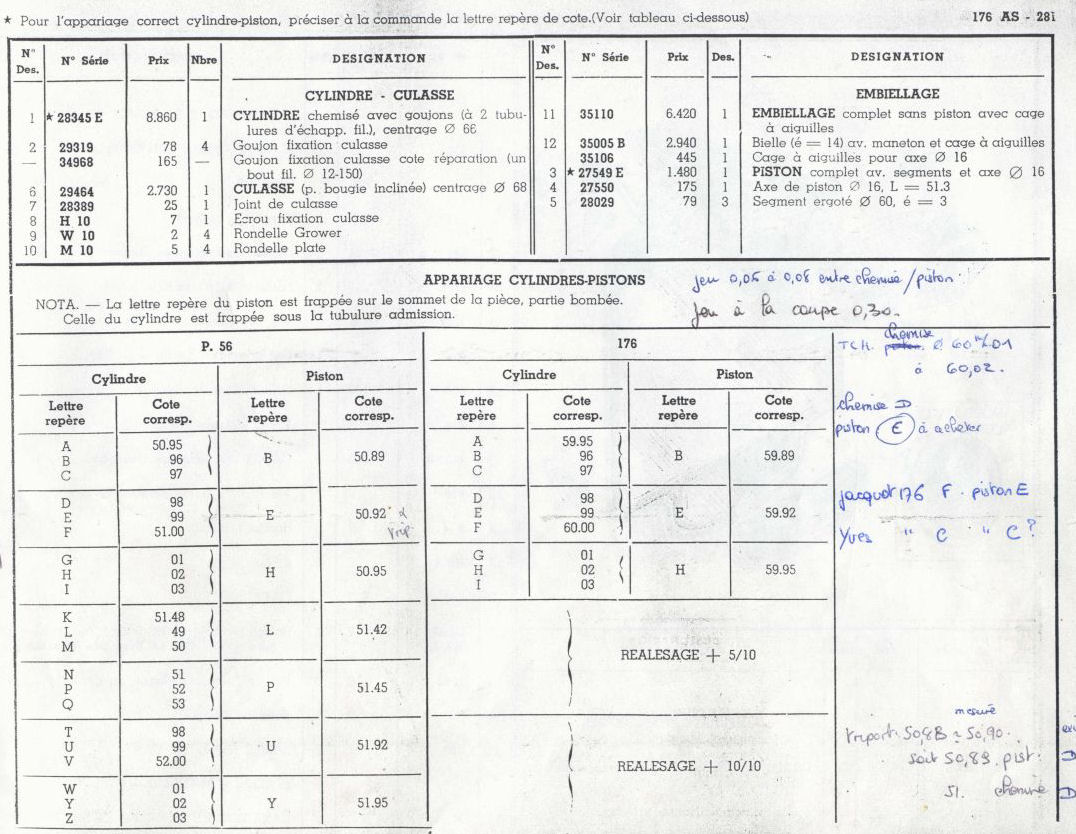 ★ Pour l'appariage correct cylindre-piston, préciser à la commande la lettre repère de cote.(Voir tableau ci-dessous) 176 AS - 281
N° Des. N° Série Prix Nbre DESIGNATION N° Des. N° Série Prix Des. DESIGNATION
CYLINDRE - CULASSE EMBIELLAGE
1 ★ 28345 E 8.860 1 CYLINDRE chemisé avec goujons (à 2 tubu- 11 35110 6.420 1 EMBIELLAGE complet sans piston avec cage
lures d'échapp. fil.), centrage Ø 66 à aiguilles
2 29319 78 4 Goujon fixation culasse 12 35005 B 2.940 1 Bielle (é = 14) av. maneton et cage à aiguilles
— 34968 165 — Goujon fixation culasse cote réparation (un 35106 445 1 Cage à aiguilles pour axe Ø 16
bout fil. Ø 12-150) 3 ★ 27549 E 1.480 1 PISTON complet av. segments et axe Ø 16
6 29464 2.730 1 CULASSE (p. bougie inclinée) centrage Ø 68 4 27550 175 1 Axe de piston Ø 16, L = 51.3
7 28389 25 1 Joint de culasse 5 28029 79 3 Segment ergoté Ø 60, é = 3
8 H 10 7 1 Ecrou fixation culasse
9 W 10 2 4 Rondelle Grower
10 M 10 5 4 Rondelle plate
APPARIAGE CYLINDRES-PISTONS jeu 0,05 à 0,08 entre chemise/piston.
NOTA. — La lettre repère du piston est frappée sur le sommet de la pièce, partie bombée.
Celle du cylindre est frappée sous la tubulure admission. Jeu à la coupe 0,30.
P. 56 176
Cylindre Piston Cylindre Piston
Lettre repère Cote corresp. Lettre repère Cote corresp. Lettre repère Cote corresp. Lettre repère Cote corresp.
A 50.95 A 59.95
B 96 B 50.89 B 96 B 59.89
C 97 C 97
D 98 D 98
E 99 E 50.92 E 99 E 59.92
F 51.00 F 60.00
G 01 G 01
H 02 H 50.95 H 02 H 59.95
I 03 I 03
K 51.48
L 49 L 51.42
M 50
REALESAGE + 5/10
N 51
P 52 P 51.45
Q 53
T 98
U 99 U 51.92
V 52.00
REALESAGE + 10/10
W 01
Y 02 Y 51.95
Z 03
chemise
TCH. Ø 60 01
à 60,02.
chemise D
piston E à acheter
jacquot 176 F. piston E
Yves " C " C ?
mesuré
50,88 ≈ 50,90.
soit 50,89. pist.
51. chemise
D
D